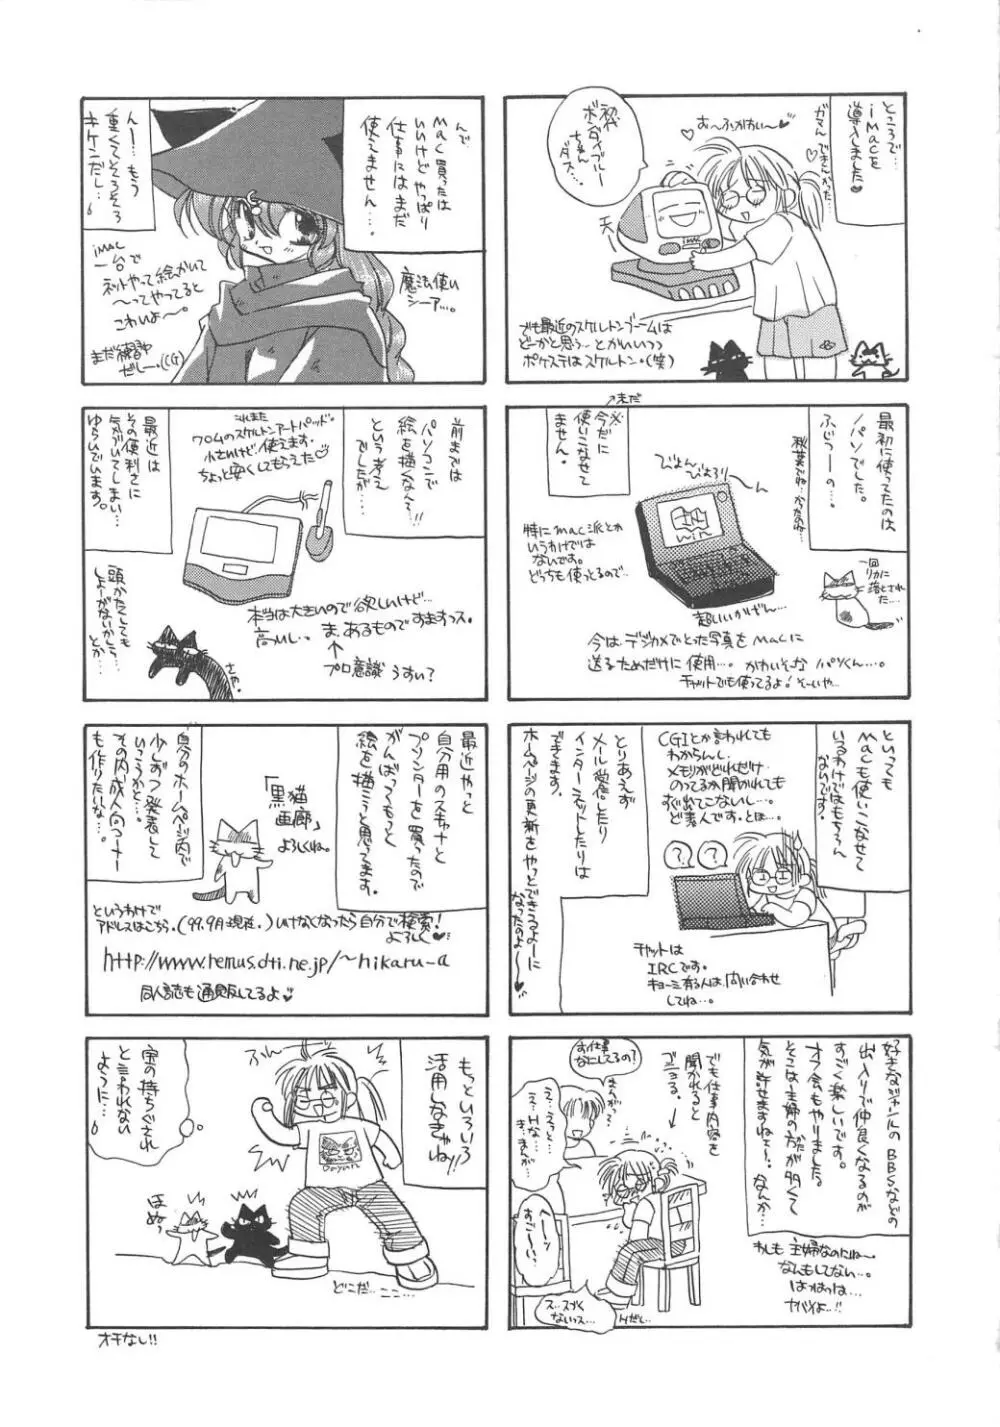 ところで…
iMacを
導入しました♥
ガマんできんかった…♡
♥お〜ふかわい〜♥
初代
ボンダイブルー
ちゃん
ダス…。
iMAC
でも最近のスケルトンブームは
どーかと思う… とかいいつつ
ポケステはスケルトン・(笑)
最初に使ってたのは
パソでした。
ふじつーの…。
秋葉でね…かったのね…
一回
リカに
落とされた…
※今だに
使いこなせて
ません。
↗未だ
びよん
びよろり
〜ん
win
特にmac派とか
いうわけでは
ないです。
どっちも使ってるので…
超しいかげん…
今は、デジカメでとった写真をmacに
送るためだけに使用…。かわいそーな パソくん…。
チャットでも使ってるよ! そーいや…
といっても
Macも使いこなせて
いるわけではもちろん
ないです。
CGIとか言われても
わからんし
メモリがどれだけ
のってるか聞かれても
すぐにでてこないし…。
ど素人です。とほ…。
？ ？
とりあえず
メール受信したり
インターネットしたりは
できます。
ホームページの更新をやっとできるよーに
なったのよ〜♥
チャットは
IRCです。
キョーミ有る人は、問い合わせ
してね…。
好きなジャンルのBBSなどの
出入りで仲良くなるのが
すごく楽しいです。
オフ会もやりました。
そこは主婦の方が多くて
気が許せますねぇ〜。なんか…
わしも 主婦なのにね〜
なんもしてない…。
はっはっは…
ヤバイよ…!!
でも仕事内容を
聞かれると
こまる。
お仕事
なにしてるの？
まんがっ？
え…えっと
え…Hな…
ま…まんが
へーっ
すご〜い
ス…スゴく
ないっス…
Hだし…
んで
Mac買ったは
いいけど やっぱり
仕事にはまだ
使えません…。
んー… もう
重くてそろそろ
キケンだし…。
iMAC
一台で
ネットやって絵かいて
〜ってやってると
こわいよ〜。
まだ練習中
だしー(CG)
魔法使い
シーア…。
前までは
パソコンで
絵を描くなんて!!
という考え
でしたが…
これまた
ワコムのスケルトンアートパッド。
小さいけど、使えます。
ちょっと安くしてもらえた♡
最近は
その便利さに
気がづいてしまい…
ゆらいでいます。
頭かたくしても
しょーがないから…
とか…
本当は大きいので欲しいけど…
高いし…。 ま、あるものですますっス。
↑
プロ意識 うすい？
最近やっと
自分用のスキャナと
プリンターを買ったので
がんばってもっと
絵を描こうと思ってます。
「黒猫
画廊」
よろしくね。
自分のホームページ内で
少しずつ発表して
いこうかと…。
その内、成人向コーナー
も作りたいな…
というわけで
アドレスはこちら。(99.9月現在。)いけなくなったら自分で検索!
よろしく♥
http://www.remus.dti.ne.jp/~hikaru-a
同人誌も通販してるよ♥
もっといろいろ
活用しなきゃね!!
ふん
Dayan
宝の持ちぐされ
と言われない
ように…。
ほめっ
どこだ…ここ…
オチなし!!